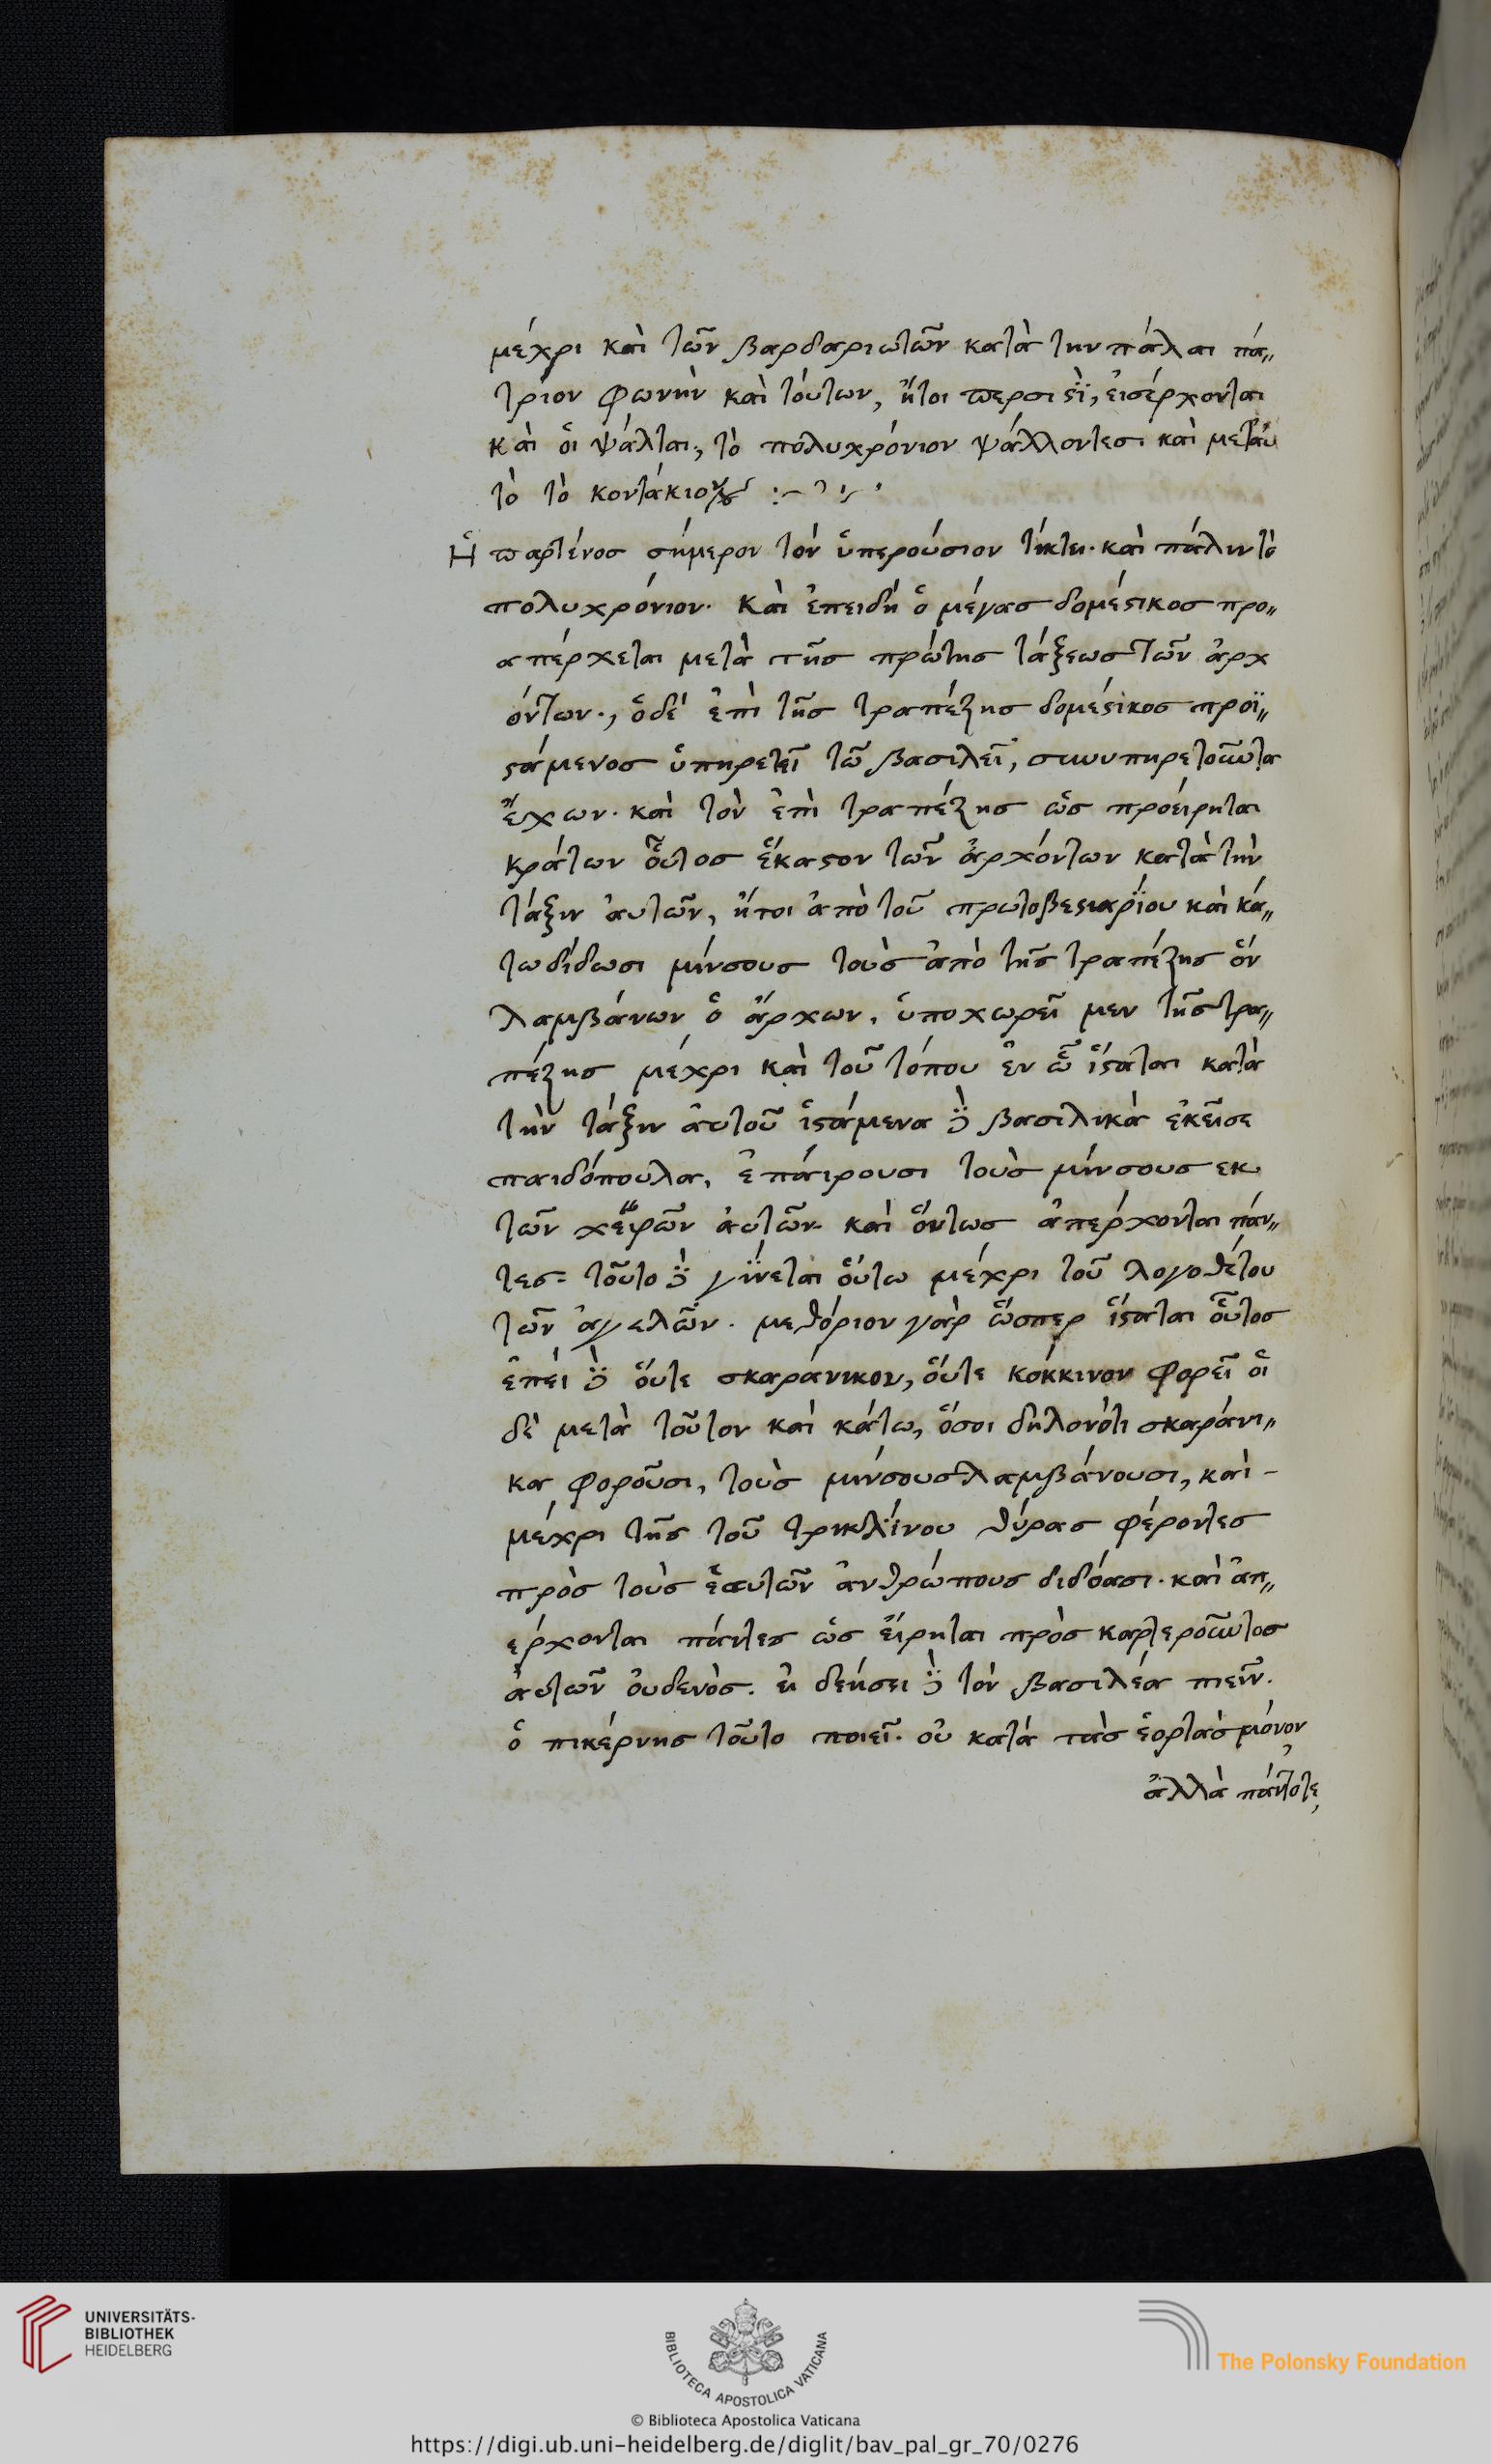 μέχρι καὶ τῶν βαρδαριωτῶν κατὰ την πάλαι πά„
τριον φωνὴν καὶ τούτων, ἤτοι περσιϛὶ, εἰσέρχονται
καὶ ὁι ψάλται., τὸ πολυχρόνιον ψάλλοντεσι καὶ μεταῦ
τὸ τὸ κοντάκιον
Ἡ παρτένοσ σήμερον τὸν ὑπερούσιον τίκτει. καὶ πάλιν τὸ
πολυχρόνιον. Καὶ ἐπειδὴ ὁ μέγασ δομέϛικοσ προ„
απέρχεται μετὰ τῆσ πρώτησ τάξεωσ τῶν ἀρχ
όντων., ὁδὲ ἐπὶ τῆσ τραπέζησ δομέϛικοσ προϊ„
ϛάμενοσ ὑπηρετεῖ τῶ βασιλεῖ, συνυπηρετοῦντα
ἔχων. καὶ τὸν ἐπὶ τραπέζησ ὡσ προείρηται
κράτων οὗτοσ ἕκαϛον τῶν ἀρχόντων κατὰ τὴν
τάξιν ἀυτῶν, ἤτοι ἀπὸ τοῦ πρωτοβεϛιαρίου καὶ κά„
τω δίδωσι μίνσουσ τοὺσ ἀπὸ τῆσ τραπέζησ ὃν
λαμβάνων ὁ ἄρχων, ὑποχωρεῖ μεν τῆσ τρα„
πέζησ μέχρι καὶ τοῦ τόπου ἐν ὧ ἵϛαται κατὰ
τὴν τάξιν ἀυτοῦ ἱϛάμενα δὲ βασιλικὰ ἐκεῖσε
παιδόπουλα, ἐπάιρουσι τοὺσ μίνσουσ εκ
τῶν χειρῶν ἀυτῶν. καὶ ὅντωσ ἀπέρχονται πάν„
τεσ= τοῦτο δὲ γίνεται ὅυτω μέχρι τοῦ λογοθέτου
τῶν ἀγελῶν. μεθόριον γὰρ ὥσπερ ἵϛαται οὗτοσ
ἐπεὶ δὲ ὄυτε σκαράνικον, ὄυτε κόκκινον φορεῖ ὁι
δὲ μετὰ τοῦτον καὶ κάτω, ὅσοι δηλονότι σκαράνι„
κα φοροῦσι, τοὺσ μίνσουσ λαμβάνουσι, καὶ -
μέχρι τῆσ τοῦ τρικλίνου θύρασ φέροντεσ
πρὸσ τοὺσ ἑαυτῶν ἀνθρώπουσ διδόασι. καὶ ἀπ„
έρχονται πάντεσ ὡσ ἔιρηται πρὸσ καρτεροῦντοσ
ἀυτῶν ὀυδενὸσ. ἐι δεήσει δὲ τὸν βασιλέα πιεῖν.
ὁ πικέρνησ τοῦτο ποιεῖ. οὐ κατὰ τὰσ ἑορτὰσ μόνον
ἀλλὰ πάντοτε,
UNIVERSITÄTS-
BIBLIOTHEK
HEIDELBERG
BIBLIOTECA APOSTOLICA VATICANA
© Biblioteca Apostolica Vaticana
The Polonsky Foundation
https://digi.ub.uni-heidelberg.de/diglit/bav_pal_gr_70/0276